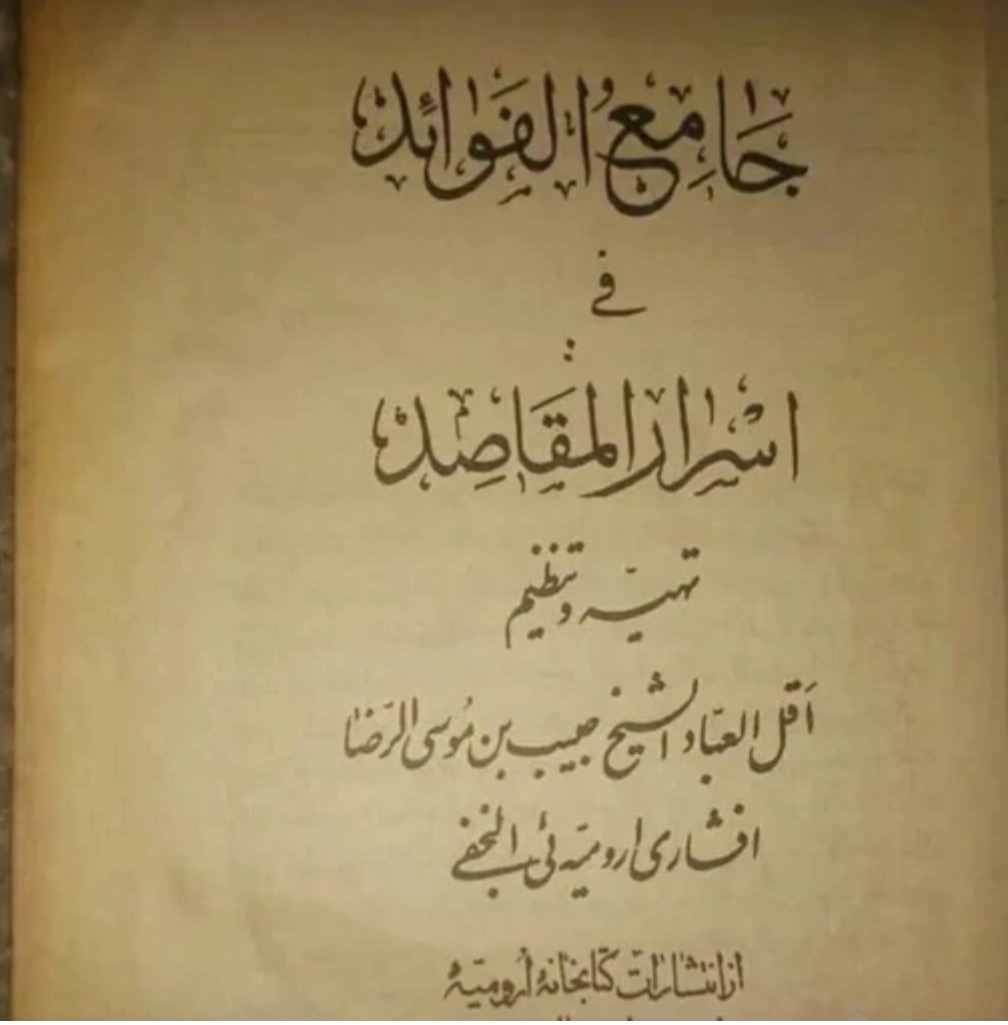 جَامِعُ الفَوَائِد
في
اسْرار المَقَاصِد
تهیّه و تنظیم
اَقل العبّاد الشیخ حبیب بن مُوسی الرّضا
افشاری ارومیّه ئی النجفی
از انتشارات کتابخانهٔ اُرومیّهٔ